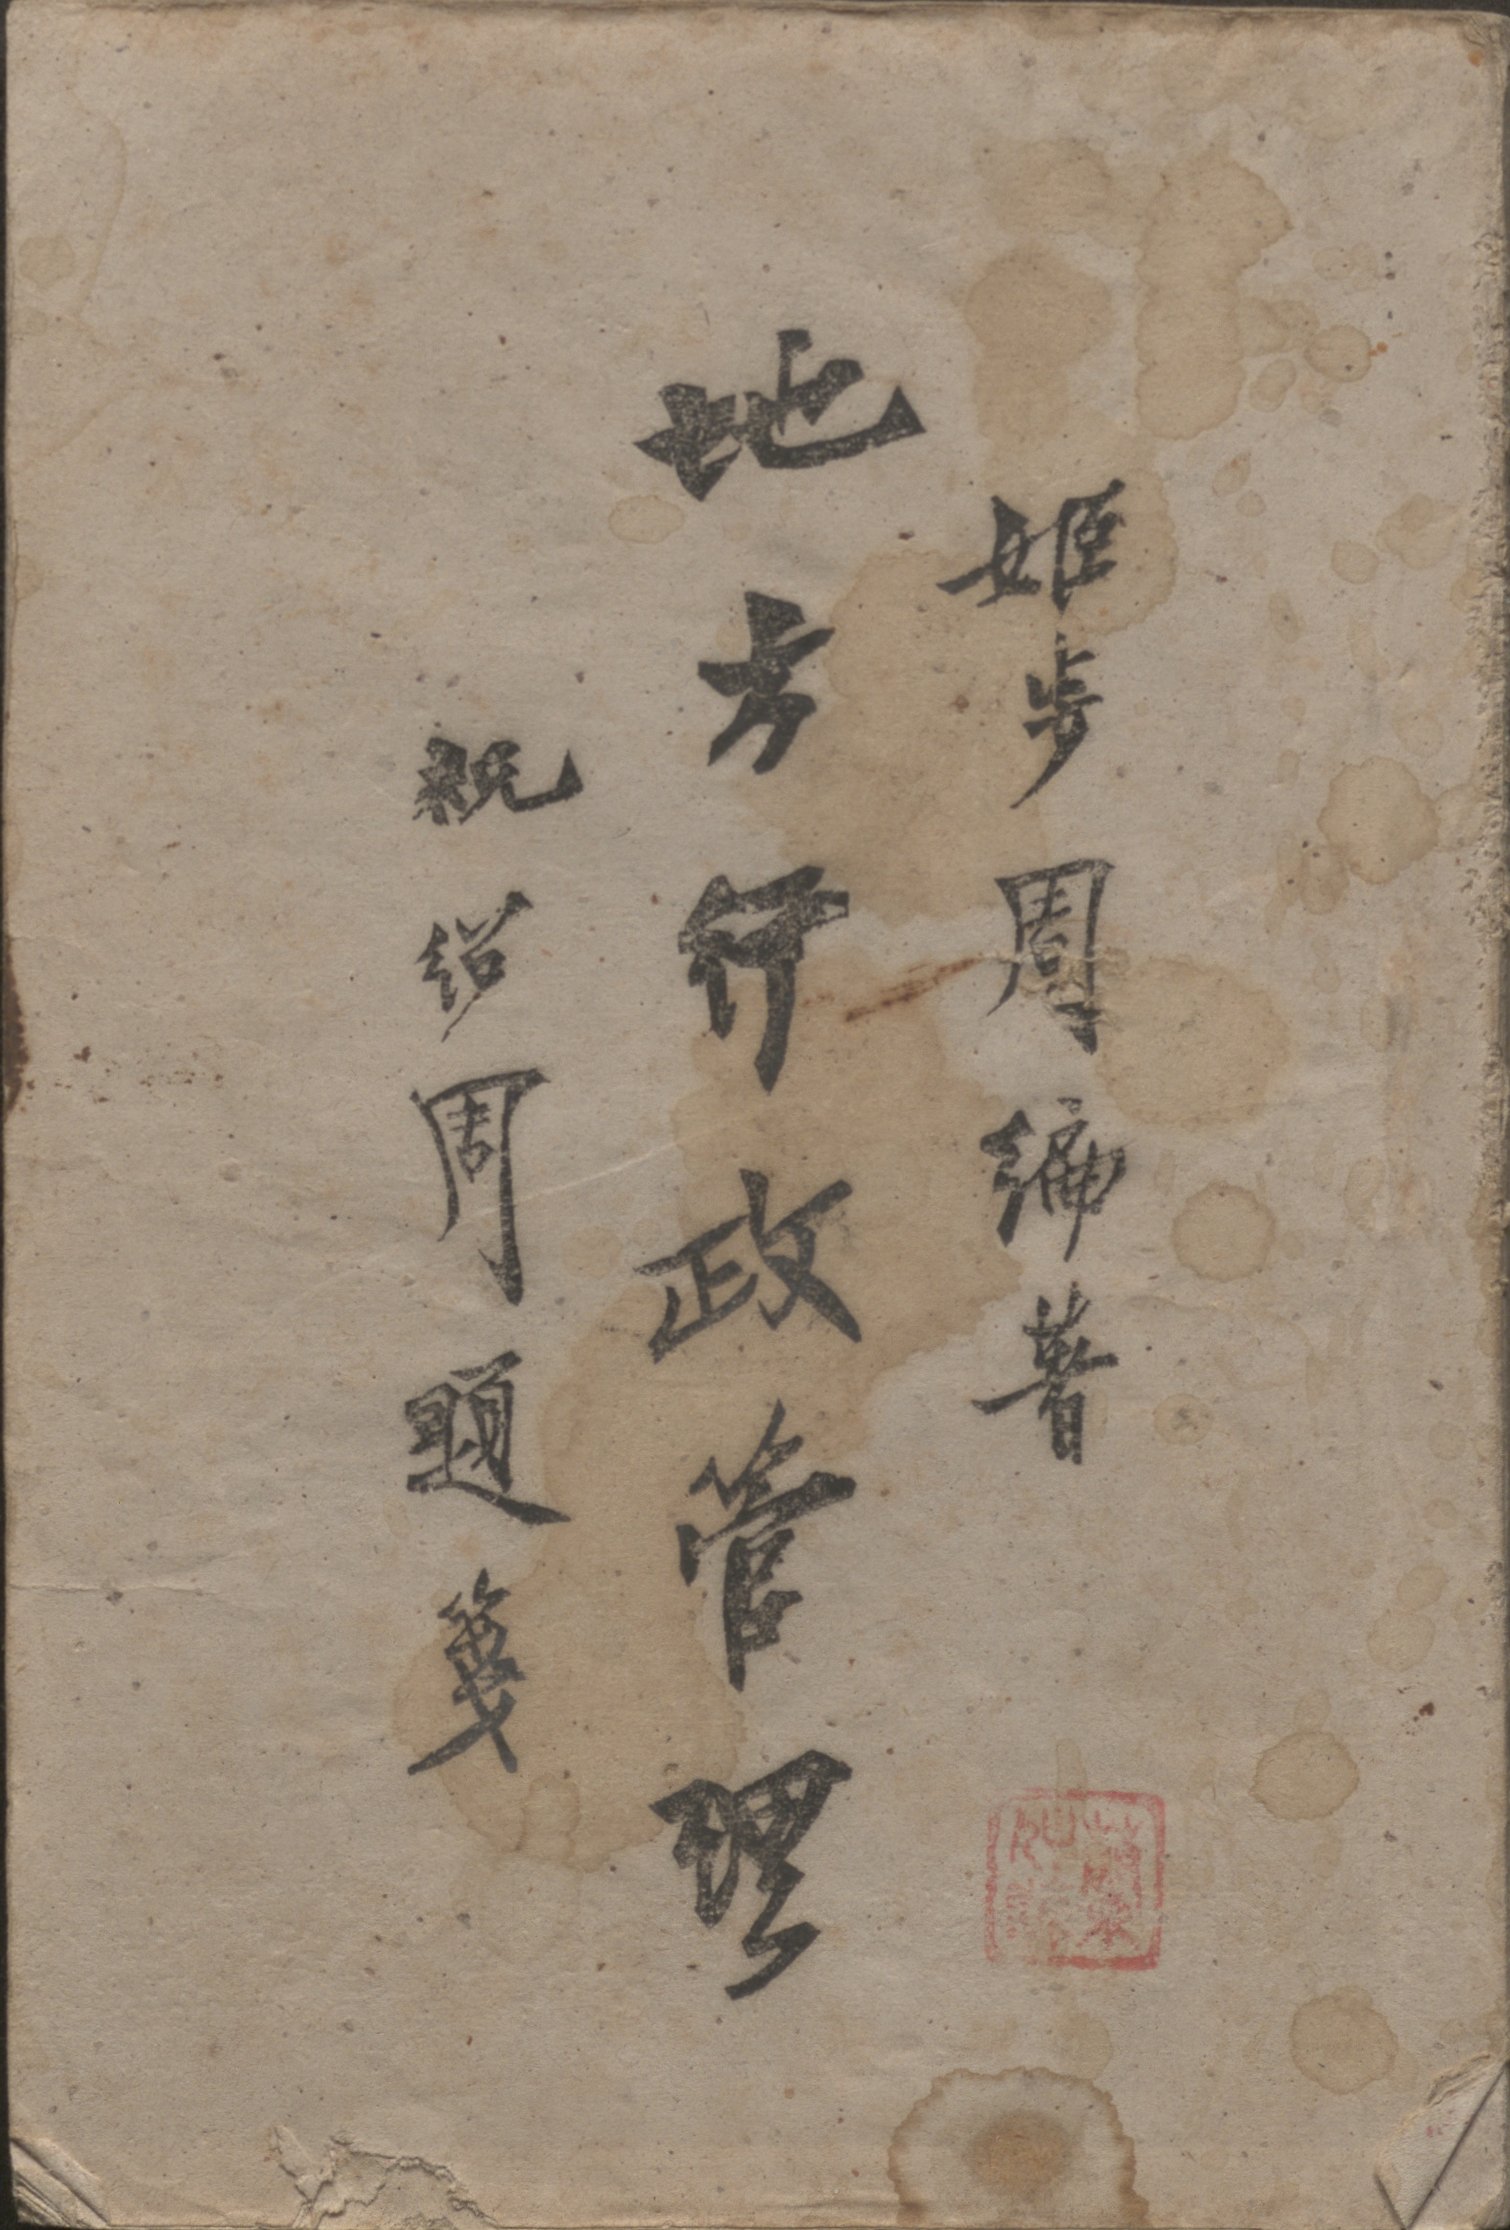 姬步周編著
地方行政管理
祝紹周題箋